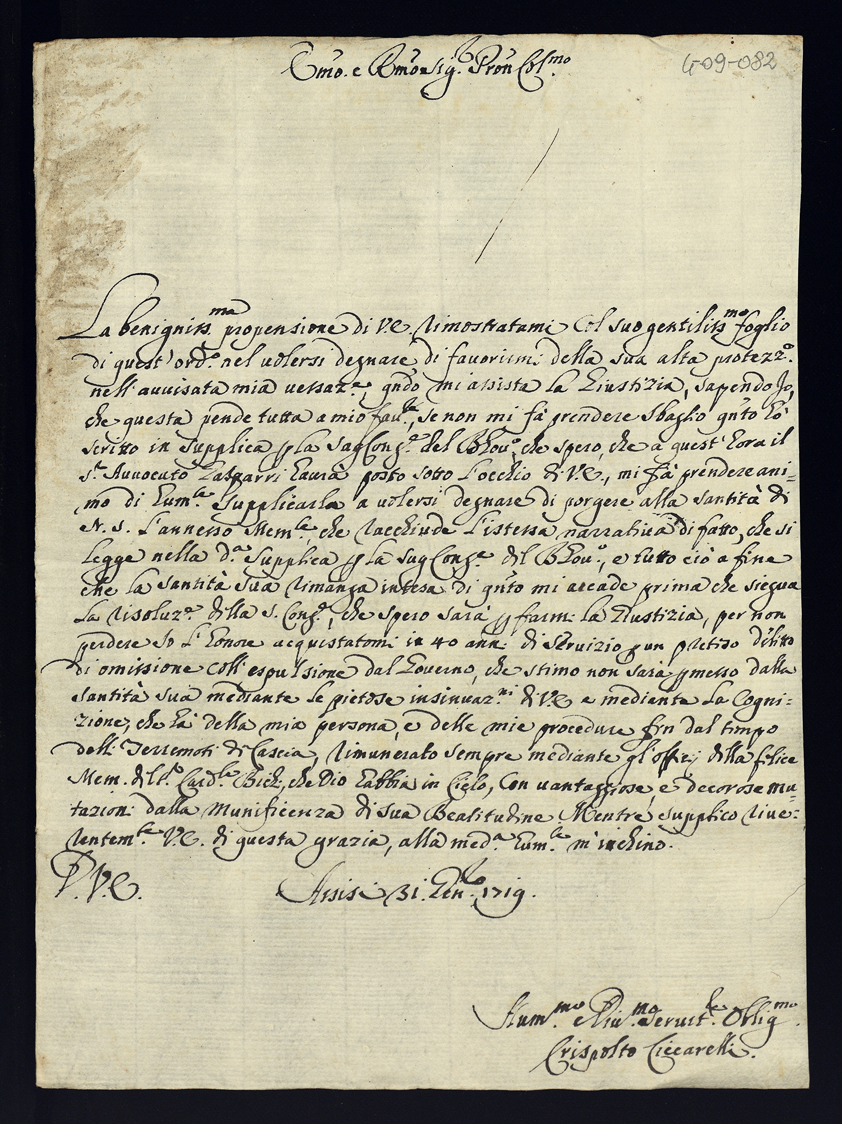 Emo. e Rmo Sig.r Pron Col.mo
409-082
La benigniss.ma propensione di V.E. rimostratami col suo gentiliss.mo foglio
di quest'ord.o nel volersi degnare di favorirmi della sua alta protezz.e
nell'avvisata mia vessaz.e, qndo mi assista la Giustizia, sapendo Io,
che questa pende tutta a mio fav.re, se non mi fà prendere sbaglio qnto hò
scritto in supplica p la Sag. Cong.e del B. Gov.o, che spero, che a quest'hora il
S.r Avvocato Gasparri haurà posto sotto l'occhio di V.E., mi fà prendere ani=
mo di Eum.te supplicarla a volersi degnare di porgere alla Santità di
N. S. l'annesso Mem.le, che racchiude l'istessa narrativa di fatto, che si
legge nella d.a supplica p la Sag. Cong.e del B. Gov.o, e tutto ciò a fine
che la Santità Sua rimanga intesa di qnto mi accade prima che siegua
la risoluz.e della S. Cong.e, che spero sarà p farmi la Giustizia, per non
perdere Io l'honore acquistatomi in 40 anni di servizio p un preteso delitto
di omissione coll'espulsione dal Governo, che stimo non sarà pmesso dalla
Santità Sua mediante le pietose insinuaz.ni di V.E. e mediante la Cogni=
zione, che hà della mia persona, e delle mie procedure fin dal tempo
delli Terremoti di Cascia, rimunerato sempre mediante gl'offizj della felice
Mem. del S.r Card.le Bichi, che Dio habbia in Cielo, con vantaggiose, e decorose mu=
tazioni dalla Munificenza di Sua Beatitudine Mentre supplico rive=
rentem.te V.E. di questa grazia, alla med.a Eum.te m'inchino.
D. V. E. Assisi 31. Gen.ro 1719.
Hum.mo e Div.mo Servit.re Oblig.mo
Crispolto Ciccarelli.